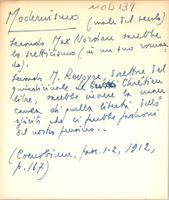 Modernismo MOD 139
(male del secolo)
Secondo Max Nordau sarebbe
lo scetticismo (in un suo roman
zo).
Secondo M. Revoyre, direttore del
quindicinale le Chrétien
libre, sarebbe invece la man
canza di quella libertà dello
spirito che ci farebbe padroni
del nostro pensiero...
(Coenobium, fasc. 1-2, 1912,
p. 167)